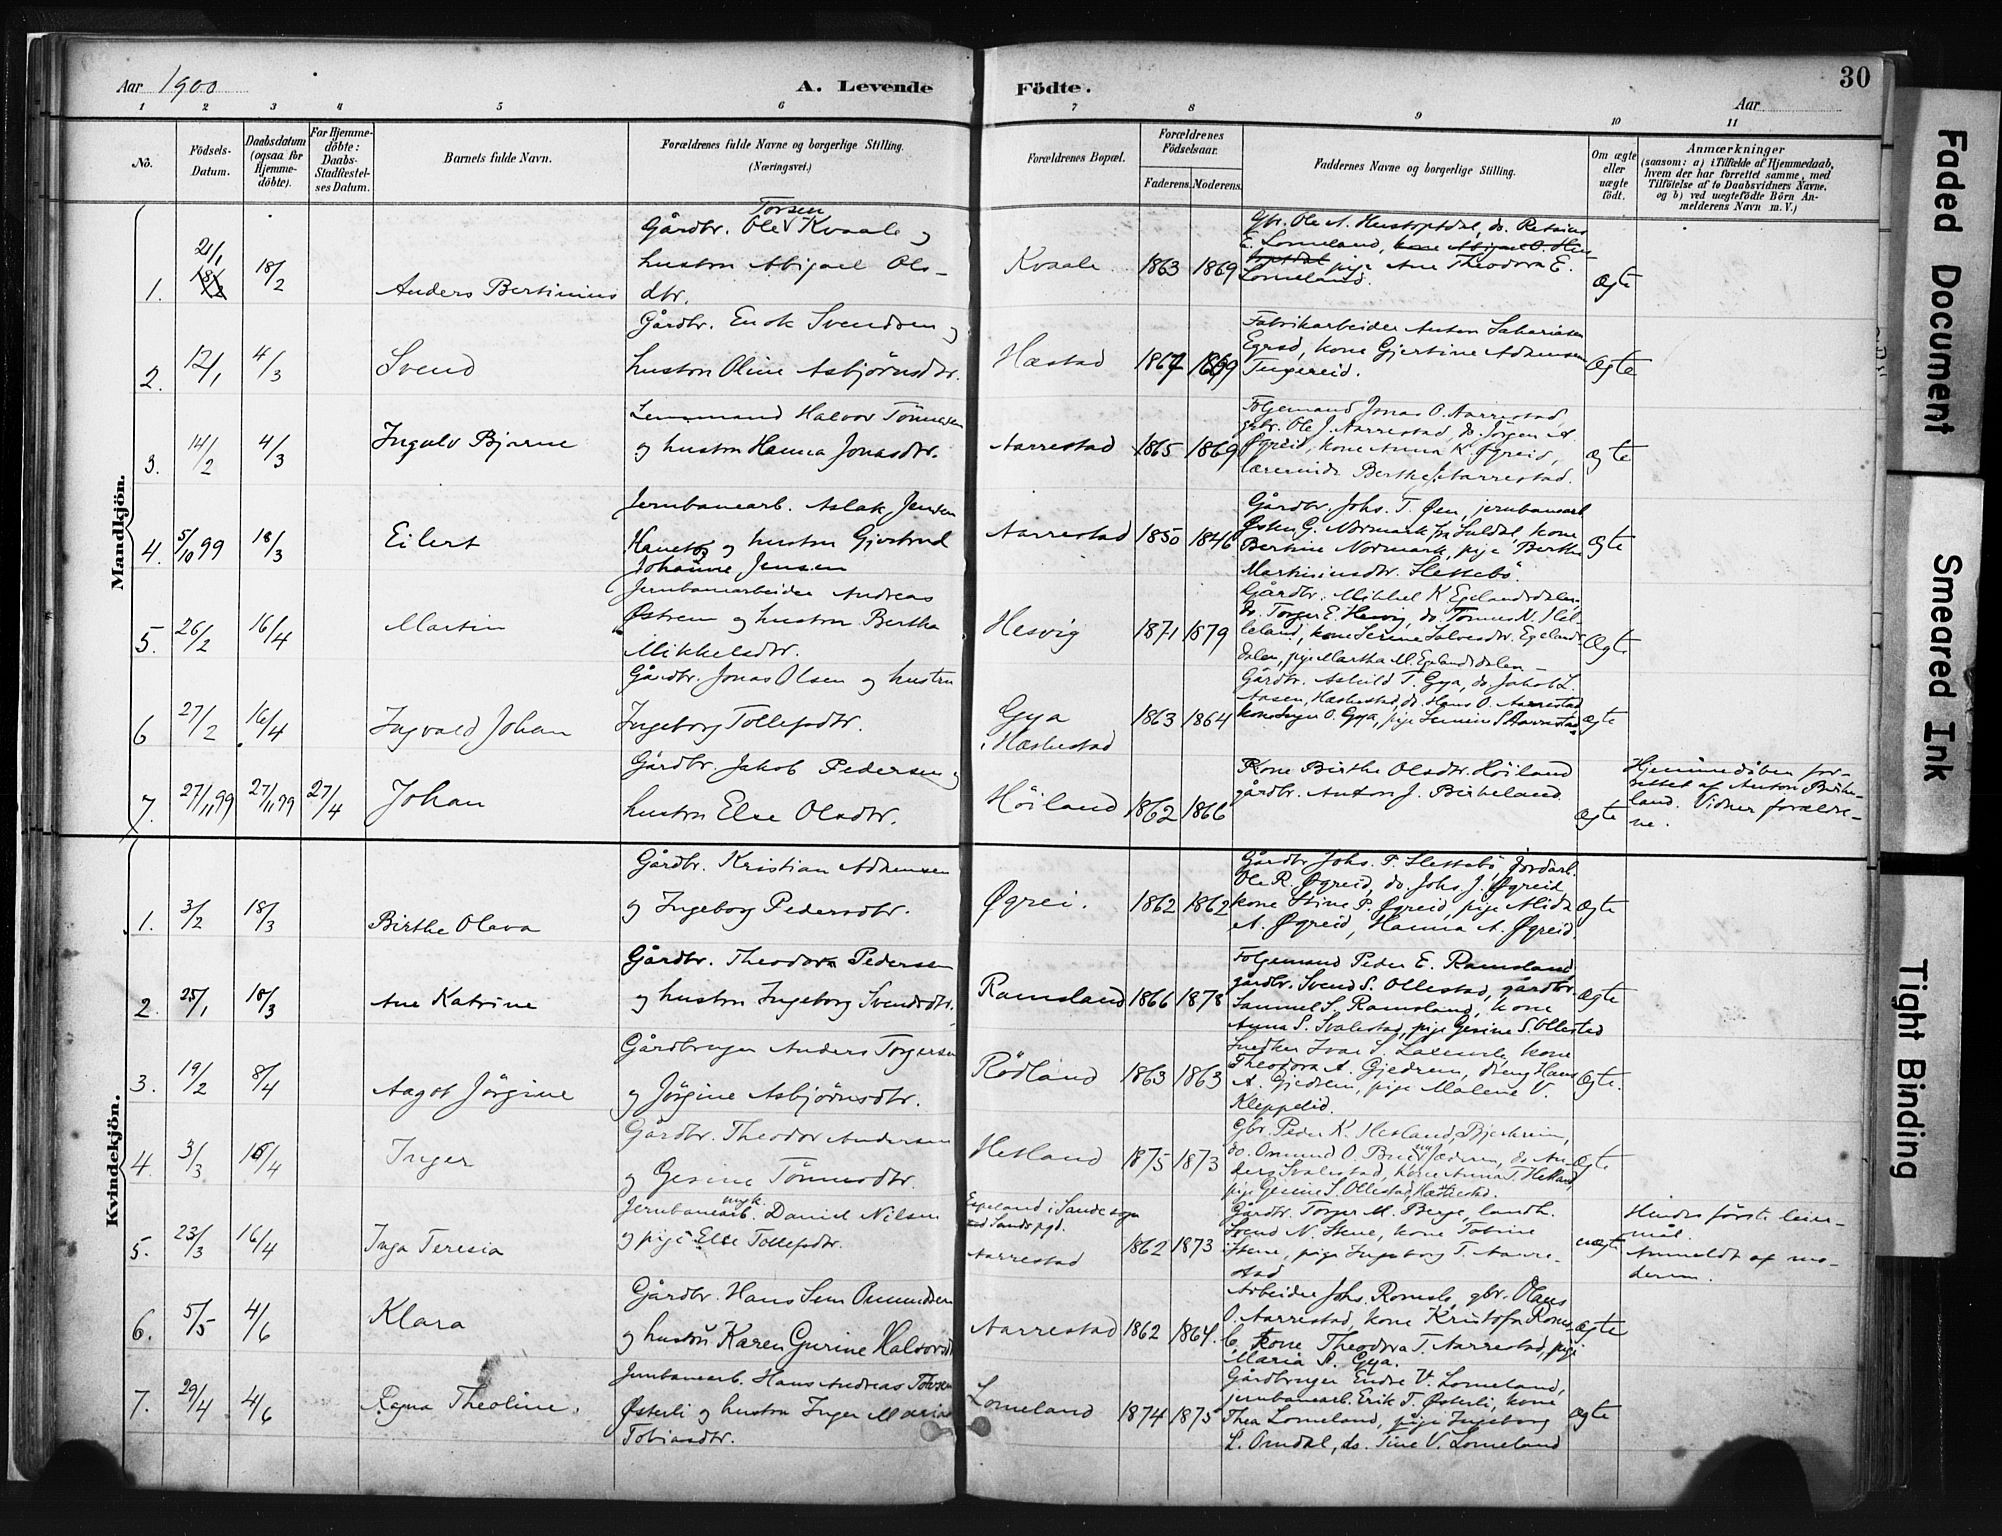 Aar 1900
A. Levende
Födte.
30
Aar
1 2 3 4 5 6 7 8 9 10 11
No.
Födsels-
Datum.
Daabsdatum
(ogsaa for
Hjemme-
döbte).
For Hjemme-
döbte:
Daabs-
Stadfæstel-
ses Datum.
Barnets fulde Navn.
Forældrenes fulde Navne og borgerlige Stilling.
(Næringsvei.)
Forældrenes Bopæl.
Forældrenes
Födselsaar.
Faderens. Moderens.
Faddernes Navne og borgerlige Stilling.
Om ægte
eller
uægte
födt.
Anmærkninger
(saasom: a) i Tilfælde af Hjemmedaab,
hvem der har forrettet samme, med
Tilföielse af to Daabsvidners Navne.
og b) ved uægtefödte Börn An-
melderens Navn m. V.)
Mandkjön.
1. 21/1 18/2
Anders Bertinius
Torsen
Gårdbr. Ole Kvaale og
hustru Abigael Ols-
dtr.
Kvaale 1863 1869
Gbr. Ole A. Hustoftdal, do.
E. Lomeland,
pige Ane Theodora E.
Lomeland.
Ægte
2. 12/1 4/3
Svend
Gårdbr. Enok Svendsen og
hustru Oline Asbjørnsdtr.
Hæstad 1867 1869
Fabrikarbeider Anton Sakariasen
Egrød, kone Gjertine Adnensen
Tengereid.
Ægte
3. 14/2 4/3
Ingulv Bjarne
Lensmand Halvor Tönnesen
og hustru Hanna Jonasdtr.
Aarrestad 1865 1869
Folgemand Jonas O. Aarrestad,
gbr. Ole J. Aarrestad, do. Jörgen A.
Øgreid, kone Anna K. Øgreid,
lærerinde Berthe J. Aarrestad.
Ægte
4. 5/10 99 18/3
Eilert
Jernbanearb. Aslak Jensen
og hustru Gjertrud
Johanne Jensen
Aarrestad 1850 1846
Gårdbr. Johs. T. Øen, jernbanearb
Østen G. Normark fra Suldal, kone
Bertine Normark, pige Berthe
Martiniusdtr. Slettebö.
Ægte
5. 26/2 16/4
Martin
Jernbanearbeider Andreas
Østrem og hustru Bertha
Mikkelsdtr.
Hesvig 1871 1879
Gårdbr. Mikkel K Egelandsdalen,
do. Torger E. Hesvig, do. Tönnes N. Hel-
leland, kone Serine Salvesdtr. Egelands-
dalen, pige Martha M. Egelandsdalen
Ægte
6 27/2 16/4
Ingvald Johan
Gårdbr. Jonas Olsen og hustru
Ingeborg Tollefsdtr.
Gya
i Hæskestad
1863 1864
Gårdbr. Askild T. Gya, do. Jakob L.
Aasen, Hæskestad, do. Hans O. Aarrestad,
kone Inger O. Gya, pige S. Aarrestad
Ægte
7. 27/11 99 27/11 99 27/4
Johan
Gårdbr. Jakob Pedersen og
hustru Else Olsdtr.
Höiland 1862 1866
Kone Birthe Olsdtr. Höiland
gårdbr. Anton J. Birkeland.
Ægte
Hjemmedåben for-
rettet af Anton Birke-
land. Vidner forældre-
ne.
Kvindekjön.
1. 3/2 18/3
Birthe Olava
Gårdbr. Kristian Adnensen
og Ingeborg Pedersdtr.
Øgrei. 1862 1862
Gårdbr Johs. P. Slettebö, Jordarb.
Ole R. Øgreid, do. Johs J. Øgreid
kone Stine P. Øgreid, pige Alida
A. Øgreid, Hanna A. Øgreid.
Ægte
2. 25/1 18/3
Ane Katrine
Gårdbr. Theodor Pedersen
og hustru Ingeborg Svendsdtr.
Ramsland 1866 1878
Folgemand Peder E. Ramsland,
gårdbr. Svend S. Ollestad, gårdbr.
Samuel S. Ramsland, kone
Anna S. Svalestad, pige Gesine S. Ollestad
Ægte
3. 19/2 8/4
Aagot Jörgine
Gårdbruger Anders Torgersen
og Jörgine Asbjørnsdtr.
Rödland 1863 1863
Snedker Ivar S. kone
Theodora A. Gjedrem, dreng Hans
A. Gjedrem, pige Malene V.
Kleppelid.
Ægte.
4. 3/3 16/4
Inger
Gårdbr. Theodor Andersen
og Gesine Tönnesdtr.
Hetland 1875 1873
Gbr. Peder K. Hetland, Bjerkreim,
do. Omund O. Bue, Jæderen, do. An-
ders Svalestad, kone Anna T. Hetland,
pige Gesine S. Ollestad, Hæskestad.
Ægte
5. 23/3 16/4
Inga Teresia
Jernbanearb. Daniel Nilsen
og pige Else Tollefsdtr.
Egeland i Sande sogn
Sands pgd.
Aarrestad
1862 1873
Gårdbr. Torger M. Berge, landh.
Svend N. Stene, kone Tobine
Stene, pige Ingeborg T. Aarre-
stad
uægte
Hendes förste leier-
mål.
Anmeldt af mo-
deren.
6. 5/5 4/6
Klara
Gårdbr. Hans Sem Omundsen
og hustru Karen Gurine Halvorsdtr
Aarrestad 1862 1864.
Arbeider Johs. Romslo, gbr. Olaus
O. Aarrestad, kone Kristofa Roms-
lo, kone Theodora T. Aarrestad, pige
Maria A. Gya.
Ægte
7. 29/4 4/6
Ragna Theoline.
Jernbanearb. Hans Andreas Tolvsen
Østerli og hustru Inger Maria
Tobiasdtr.
Lomeland 1874 1875
Gårdbruger Endre V. Lomeland,
jernbanearb. Erik T. Østerli, kone
Thea Lomeland, pige Ingeborg
L. Omdal, do. Tine V. Lomeland
Ægte
Faded Document
Smeared Ink
Tight Binding